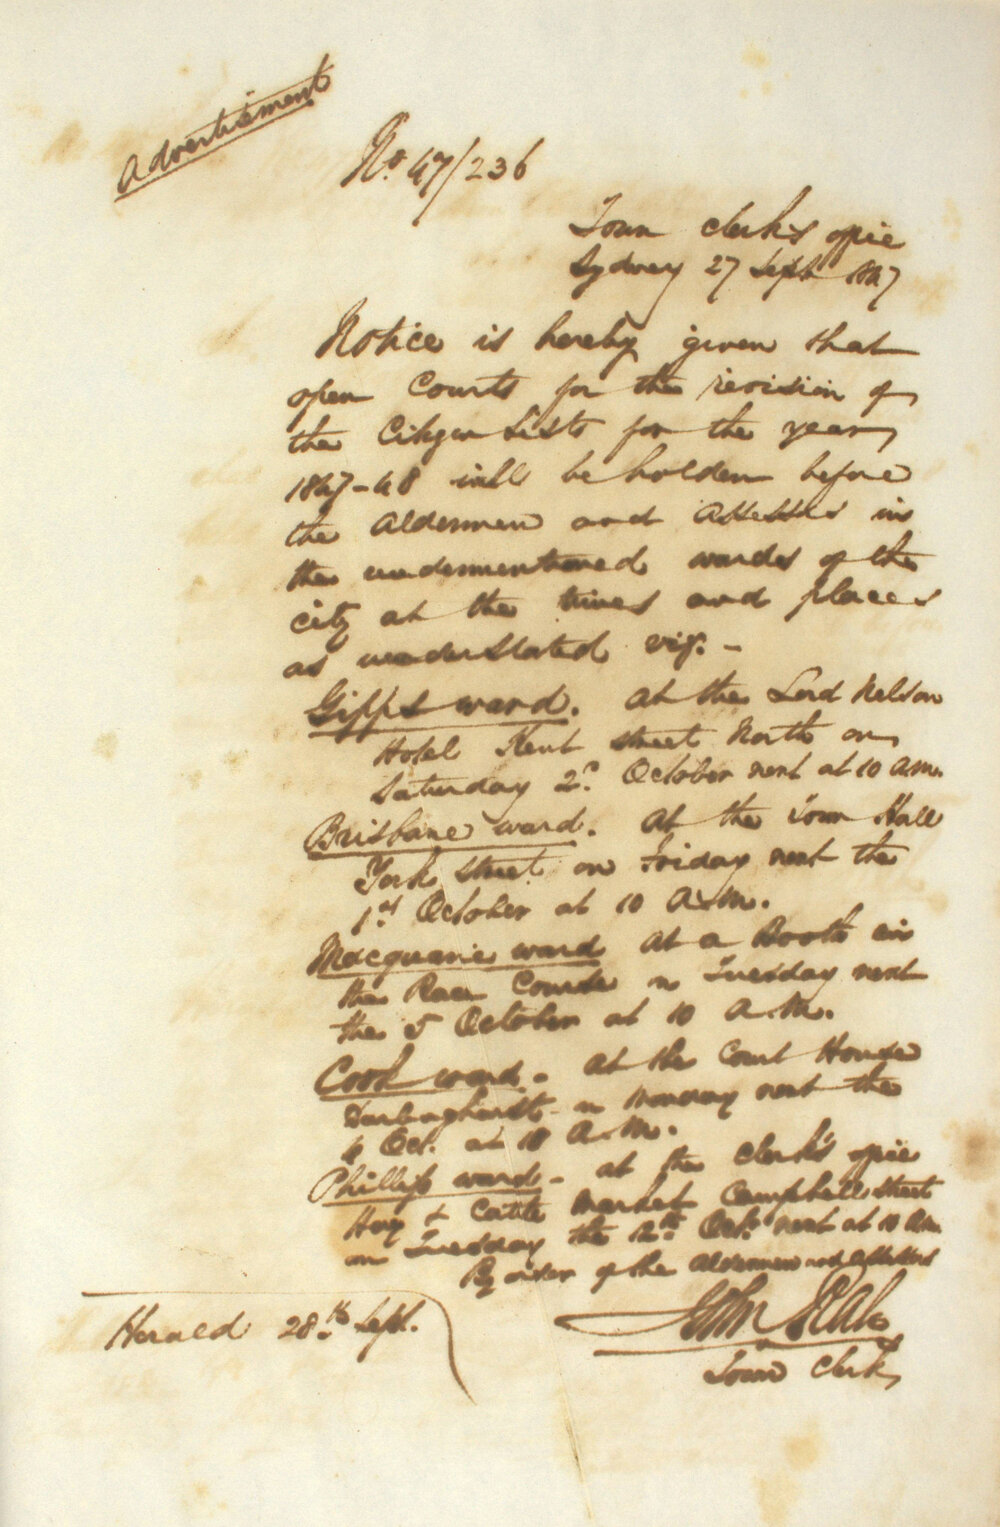 Advertisement
No. 47/236
Town Clerk's office
Sydney 27 Sept 1847
Notice is hereby given that
open Courts for the revision of
the Citizen Lists for the year
1847-48 will be holden before
the Aldermen and Assessors in
the undermentioned wards of the
city at the times and places
as understated viz. -
Gipps ward. at the Lord Nelson
Hotel Kent street North on
Saturday 2d. October next at 10 a.m.
Brisbane ward. at the Town Hall
York street on Friday next the
1st October at 10 A.M.
Macquarie ward at a Booth in
the Race Course on Tuesday next
the 5 October at 10 A.M.
Cook ward - at the Court House
Darlinghurst on Monday next the
4 Oct. at 10 A.M.
Phillip ward - at the Clerk's office
Hay & Cattle Market Campbell street
on Tuesday the 12th Octr next at 10 a.m.
By order of the Aldermen and Assessors
John
Town Clerk
Herald 28th Sept.